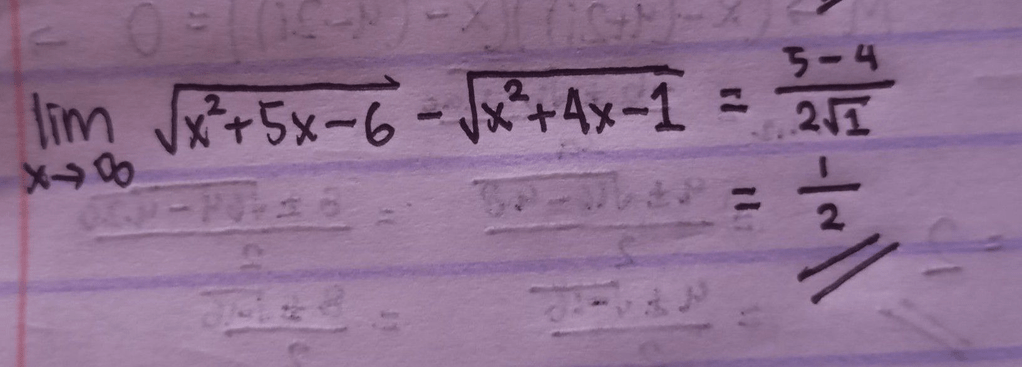 lim x→∞ √(x²+5x-6) - √(x²+4x-1) = (5-4)/(2√1)
= 1/2